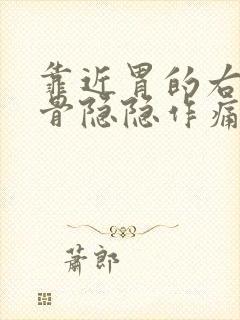 靠近胃的右
骨隐隐作痛
萧郎